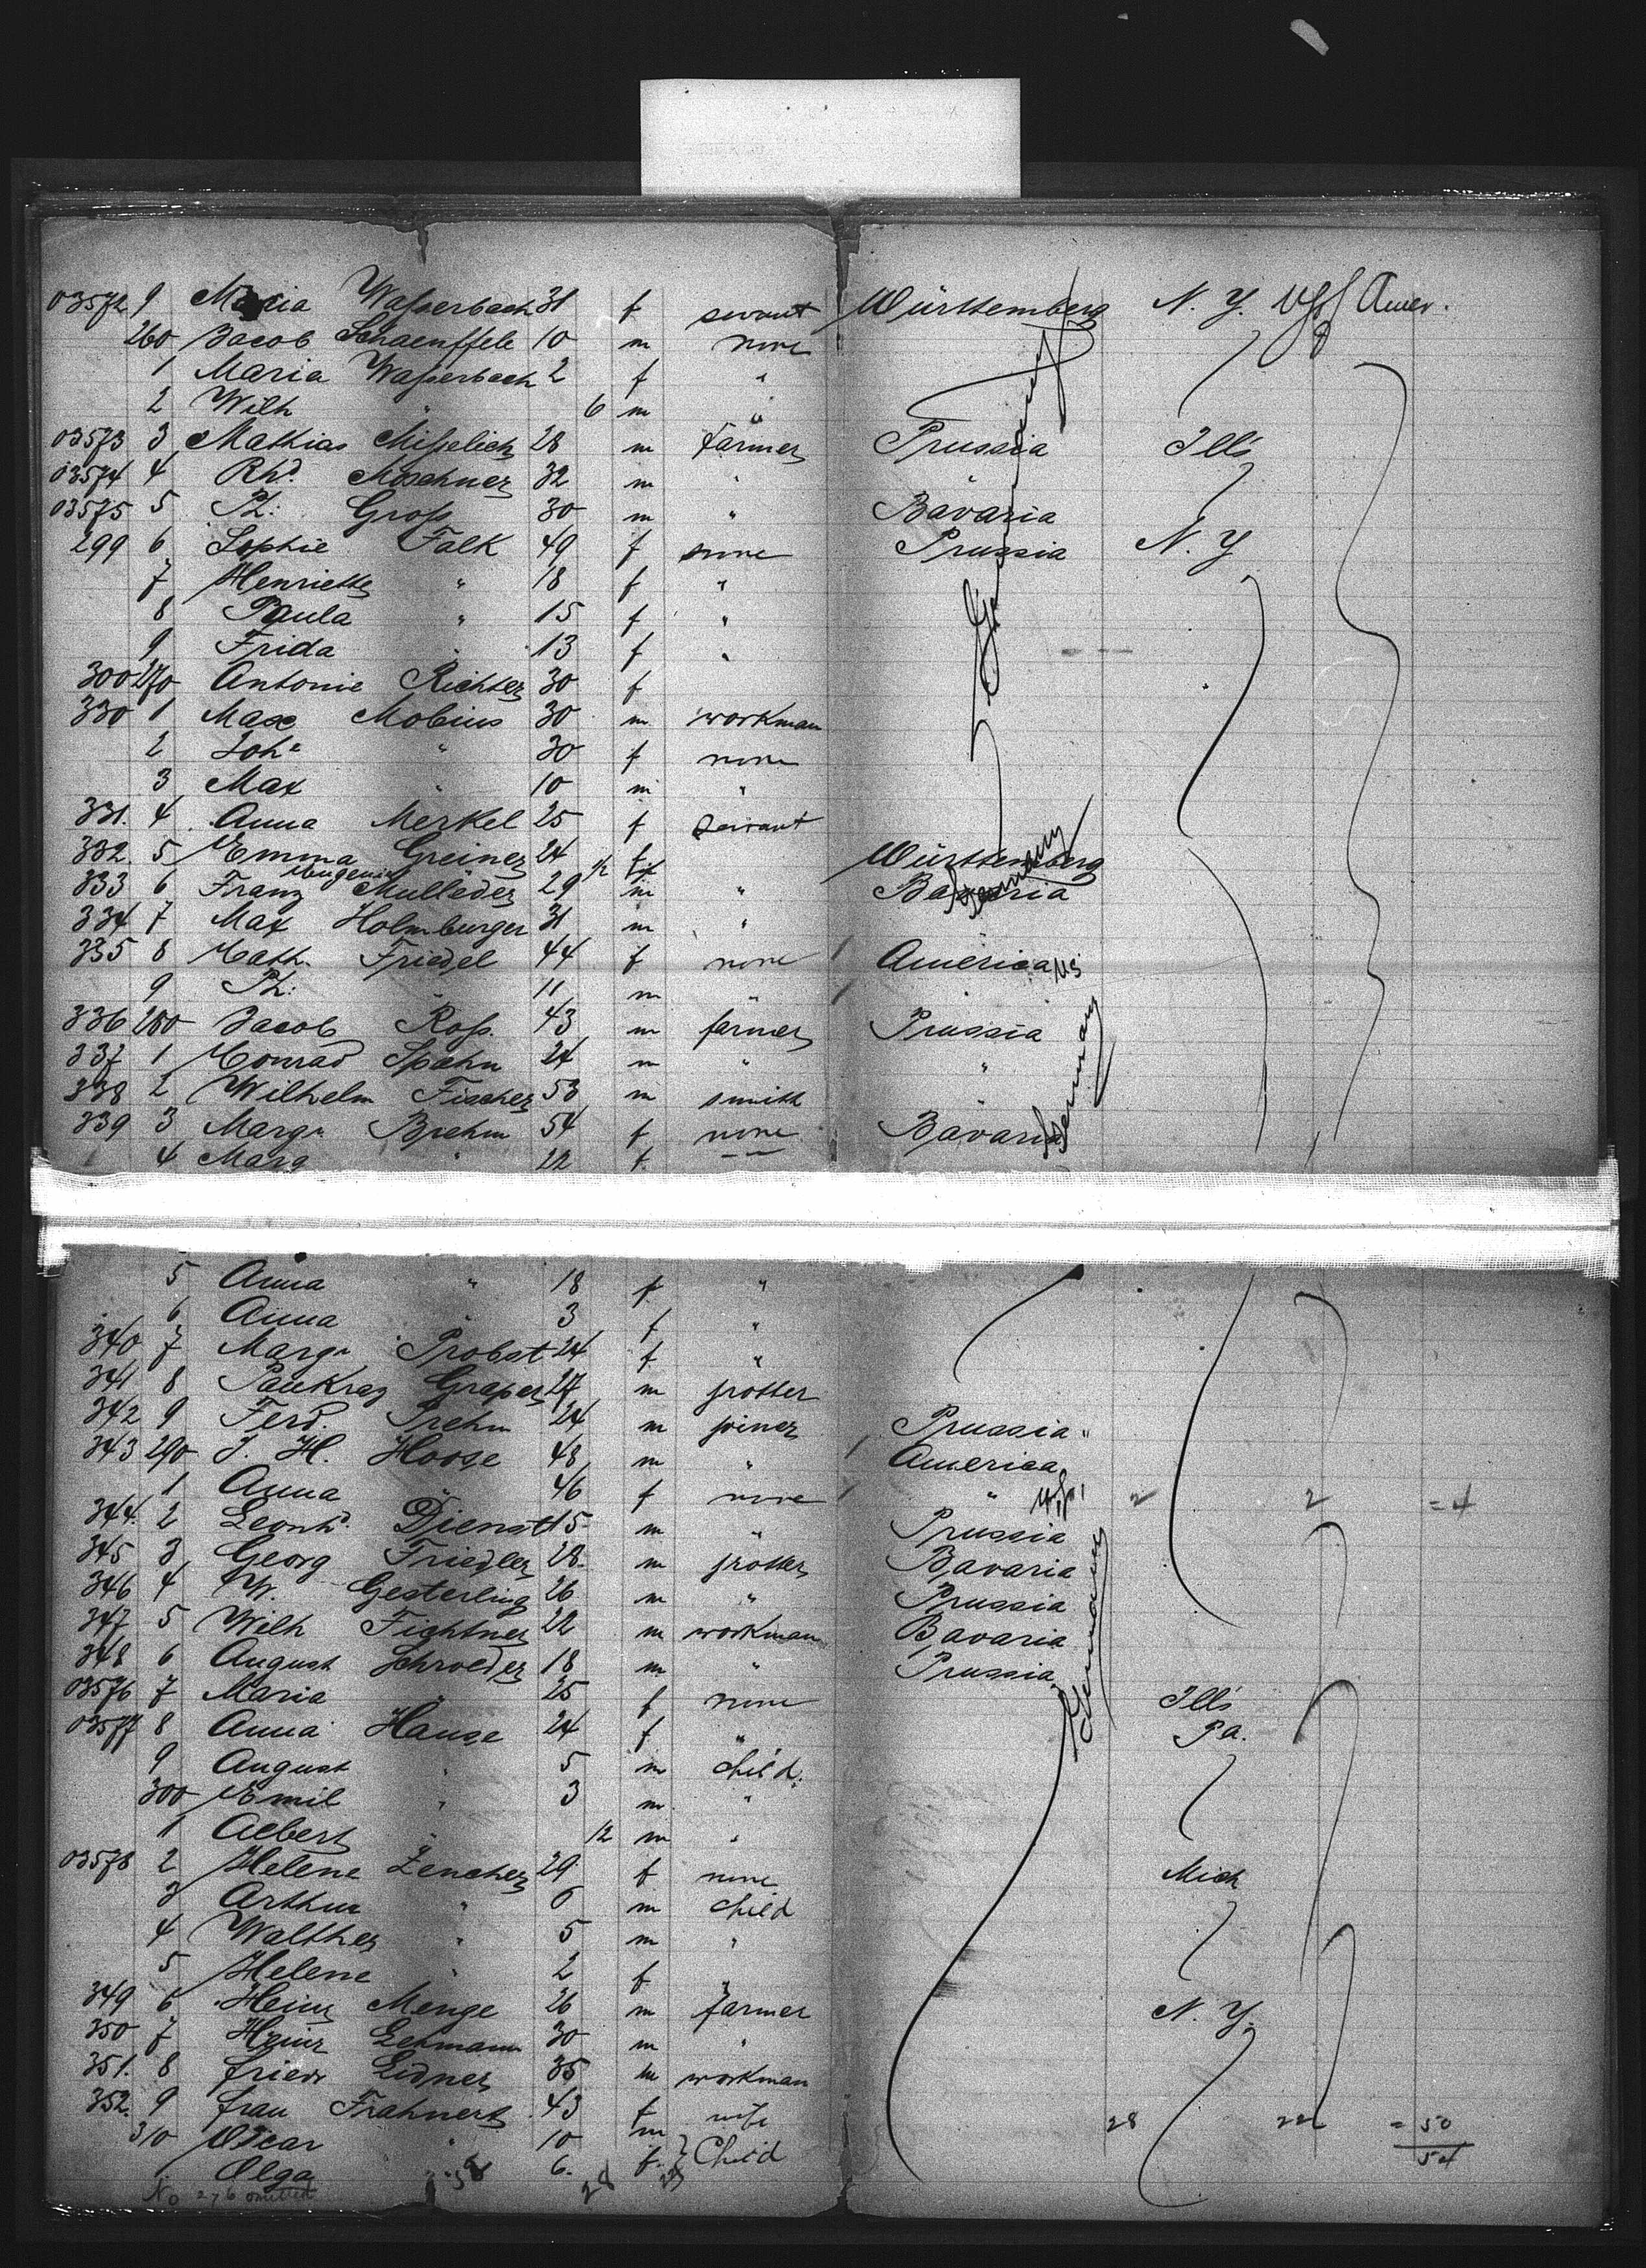 03572 9 Maria Wasserbach 31 f servant Württemberg N. Y. Amer.
260 Jacob Schaeuffele 10 m none
1 Maria Wasserbach 2 f "
2 Wilh " 6 m "
03573 3 Mathias Misselich 28 m farmer Prussia Ills
03574 4 Rhd. Moschner 32 m "
03575 5 Ph: Gross 30 m " Bavaria
299 6 Sophie Falk 49 f none Prussia N. Y
7 Henriette " 18 f "
8 Paula " 15 f "
9 Frida " 13 f "
300 270 Antonie Richter 30 f
330 1 Max Mobius 30 m workman
2 Joh " 30 f none
3 Max " 10 m "
331. 4 Anna Merkel 25 f servant
332. 5 Emma Greiner 24 f Württemberg
333 6 Franz Mulleder 29 m " Bavaria
334 7 Max Holmburger 31 m "
335 8 Cath. Friedel 44 f none America US
9 Ph: " 11 m "
336 280 Jacob Ross. 43 m farmer Prussia
337 1 Conrad Spahn 24 m " "
338 2 Wilhelm Fischer 53 m smith "
339 3 Marg. Brehm 54 f none Bavaria
4 Marg " 22 f
Germany
Germany
Germany
5 Anna " 18 f "
6 Anna 3 f "
340 7 Marg. Probst 24 f "
341 8 Pankraz Graper 27 m
342 9 Ferd. Prehm 24 m joiner Prussia "
343 290 J. H. Hoose 48 m " America
1 Anna 46 f none " US. 2 2 = 4
344. 2 Leonhd. Dienst 15 m " Prussia
345 3 Georg Friedler 28 m Bavaria
346 4 W. Gesterling 26 m " Prussia
347 5 Wilh Fichtner 22 m workman Bavaria
348 6 August Schroeder 18 m " Prussia
03576 7 Maria " 25 f none Ills
03577 8 Anna Hause 24 f " Pa.
9 August " 5 m child.
300 Emil " 3 m "
1 Albert " 12 m "
03578 2 Helene Zencher 29 f none Mich
3 Arthur " 6 m child
4 Walther " 5 m "
5 Helene " 2 f "
349 6 Heinr Menge 26 m farmer N. Y.
350 7 Heinr Lehmann 30 m "
351. 8 friedr Eidner 35 m workman
352. 9 frau Frahnert 43 f wife 28 22 = 50
310 Oscar " 10 m Child 54
Olga " 6. f.
Germany
No 276 omitted